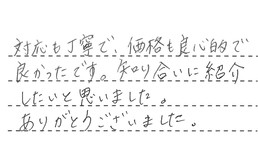 対応も丁寧で、価格も良心的で
良かったです。知り合いに紹介
したいと思いました。
ありがとうございました。